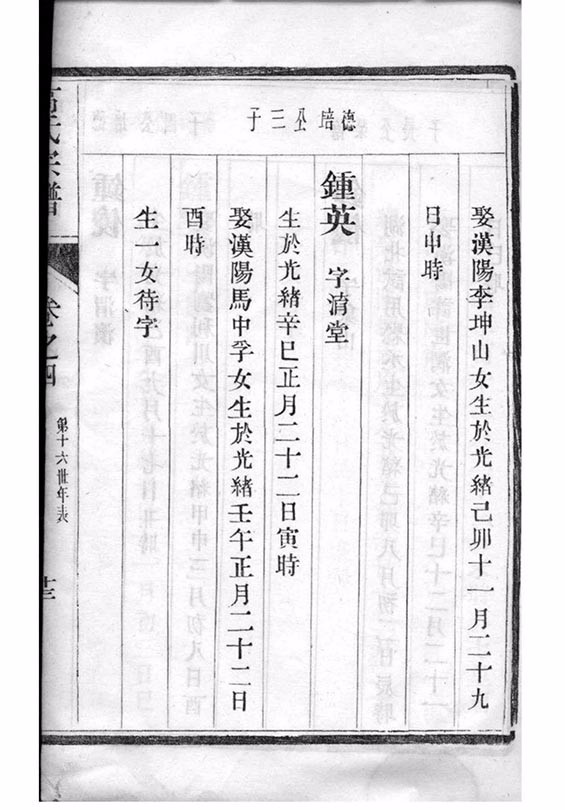 德培公三子
娶漢陽李坤山女生於光緒己卯十一月二十九
日申時
鍾英 字淯堂
生於光緒辛巳正月二十二日寅時
娶漢陽馬中孚女生於光緒壬午正月二十二日
酉時
生一女待字
高氏宗譜
卷之四
第十六世年表